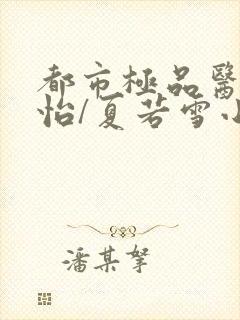 都市極品醫
怡/夏若雪小
潘某拏